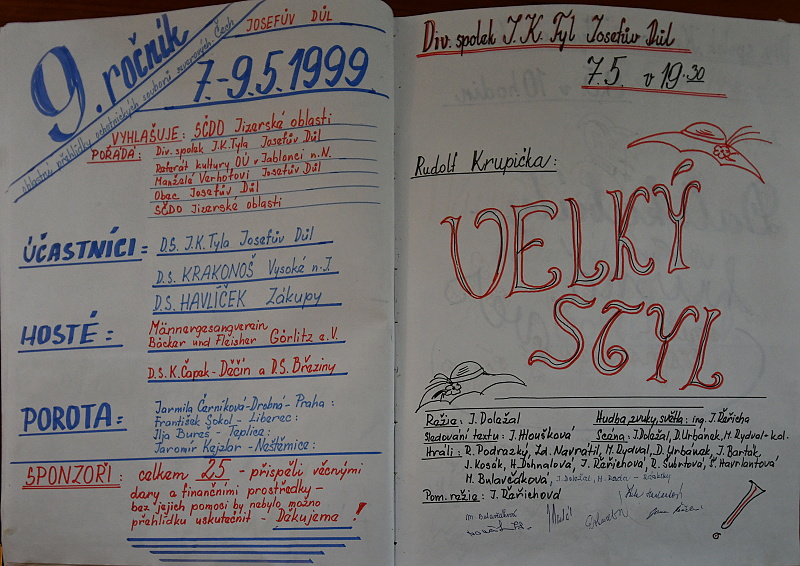 9. ročník
JOSEFŮV DŮL
oblastní přehlídky ochotnických souborů severních Čech
7.-9.5.1999
VYHLAŠUJE: SČDO Jizerská oblasti
POŘÁDÁ: Div. spolek J.K.Tyla Josefův Důl
Referát kultury OÚ v Jablonci n.N.
Manželé Verhotovi Josefův Důl
Obec Josefův Důl
SČDO Jizerská oblasti
ÚČASTNÍCI = D.S. J.K.Tyla Josefův Důl
D.S. KRAKONOŠ Vysoké n.J.
D.S. HAVLÍČEK Zákupy
HOSTÉ: Männergesangverein
Bäcker und Fleisher Görlitz e.V.
D.S.K.Čapek-Děčín a D.S. Březiny
POROTA: Jarmila Černíková-Drobná-Praha:
František Sokol-Liberec:
Ilja Bureš-Teplice:
Jaromír Kejzlar-Neštěmice:
SPONZOŘI: celkem 25 - přispěli věcnými
dary a finančními prostředky-
bez jejich pomoci by nebylo možno
přehlídku uskutečnit - Děkujeme!
Div. spolek J.K. Tyl Josefův Důl
7.5. v 19.30
Rudolf Krupička:
VELKÝ
STYL
Režie: J. Doležal Hudba, zvuky, světla: ing. J. Řeřicha
Sledování textu: J. Hloušková Scéna: J.Doležal, D.Urbánek, M. Rydval+kol.
Hráli: R. Podrazký, Zd. Navrátil, M. Rydval, D. Urbánek, J. Barták,
J. Kosák, H. Dohnalová, J. Řeřichová, R. Šubrtová, Č. Havrlantová
M. Bulavčáková, J. Doležal, H. Rada - záskoky
Pom. režie: J. Řeřichová